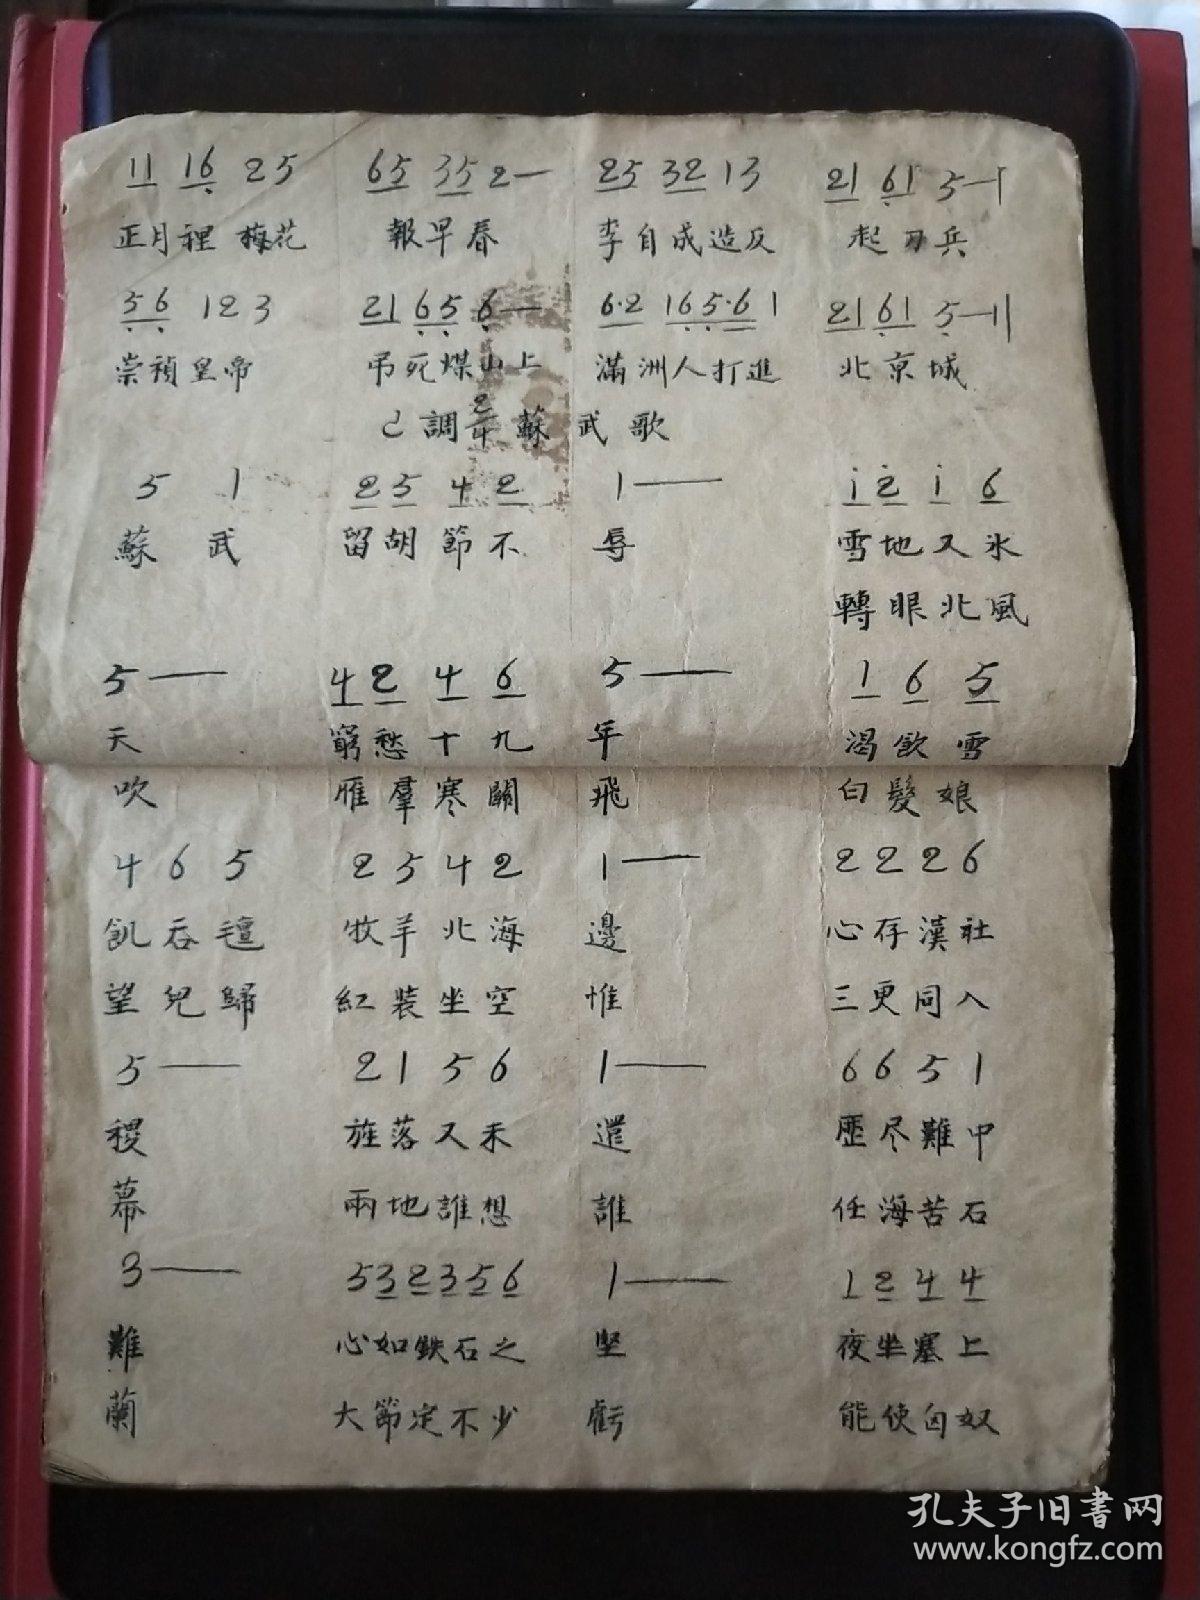 11 16 25 65 35 2— 25 32 13 21 61 5—|
正月裡 梅花 報早春 李自成造反 起刀兵
56 123 21 65 6— 6·2 16 5·6 1 21 61 5—||
崇禎皇帝 吊死煤山上 滿洲人打進 北京城
C調 2/4 蘇武歌
5 1 25 42 1— i2 i 6
蘇武 留胡節不 辱 雪地又氷
轉眼北風
5— 42 4 6 5— 1 6 5
天 窮愁十九 年 渴飲雪
吹 雁羣寒關 飛 白髮娘
4 6 5 2 5 4 2 1— 2 2 2 6
飢吞氊 牧羊北海 邊 心存漢社
望兒歸 紅裝坐空 惟 三更同入
5— 2 1 5 6 1— 6 6 5 1
稷 旌落又未 還 歷尽難中
幕 兩地誰想 誰 任海苦石
3— 5 3 2 3 5 6 1— 1 2 4 4
難 心如鉄石之 堅 夜坐塞上
蘭 大節定不少 虧 能使匈奴
孔夫子旧書网
www.kongfz.com